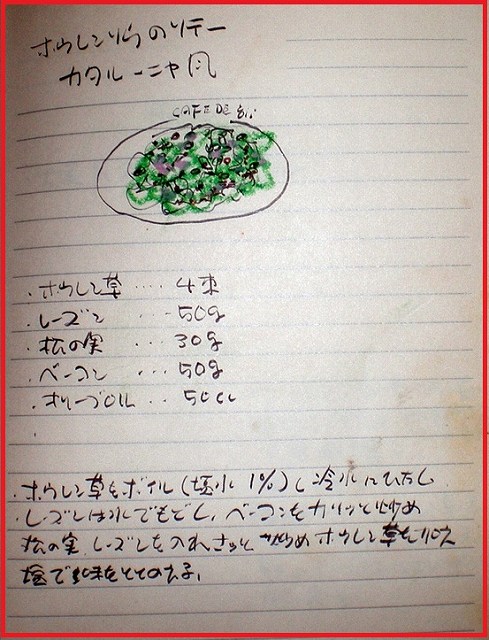 ホウレンソウのソテー
カタルーニャ風
CAFE DE
・ホウレン草・・・・4束
・レーズン ・・50g
・松の実 ・・・30g
・ベーコン ・・・50g
・オリーブOIL・・50cc
・ホウレン草をボイル(塩水1%)し冷水にひたし
・レーズンは水でもどし、ベーコンをカリッと炒め
松の実、レーズンを入れさっと炒めホウレン草を加え
塩で味をととのえる。